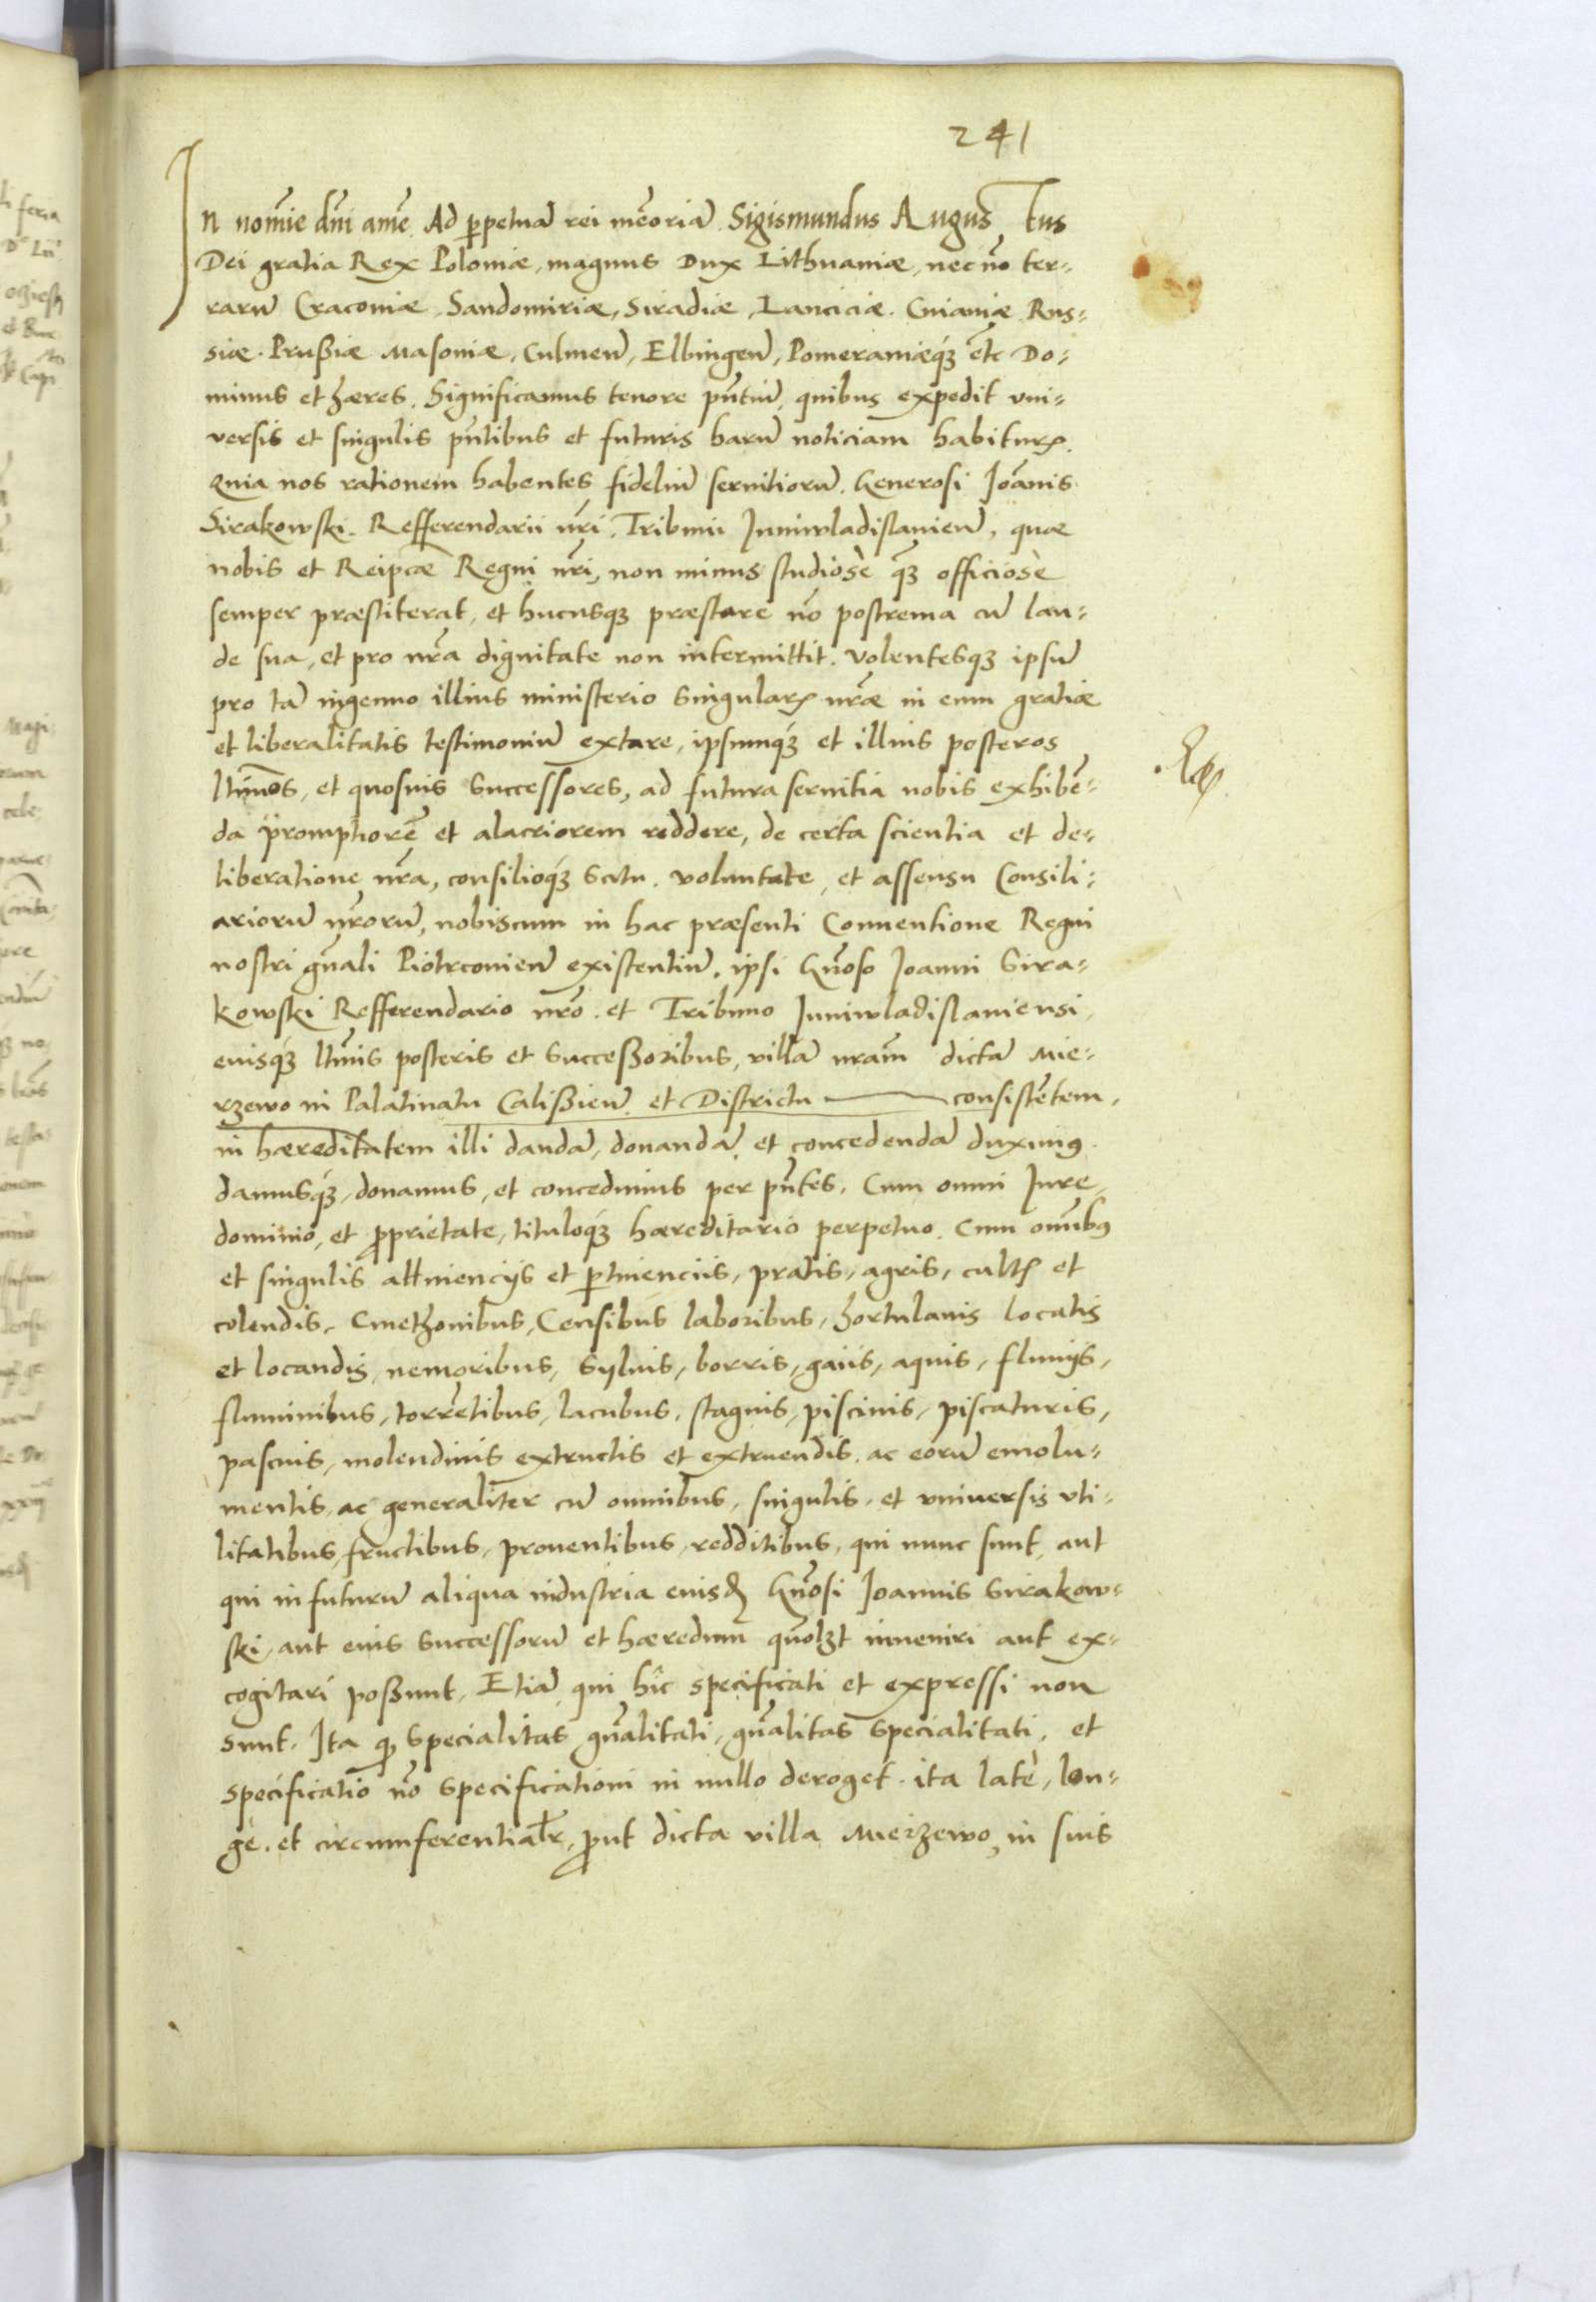 241
In nom̃ie dñi amẽ. Ad ꝑpetuã rei mẽoriã. Sigismundus Augustus
Dei gratia Rex Poloniæ, magnus Dux Lithuaniæ, necnõ ter-
rarũ Cracoviæ, Sandomiriæ, Siradiæ, Lanciciæ. Cuiaviæ Rus-
siæ. Prußiæ Masoviæ, Culmeñ, Elbingeñ, Pomeraniæq́ꝫ etc̃ Do-
minus et hæres. Significamus tenore pñtiũ, quibus expedit vni-
versis et singulis pñtibus et futuris harũ noticiam habiturꝭ.
Quia nos rationem habentes fideliũ servitiorũ. Generosi Joãnis
Sirakowski. Refferendarii nr̃i. Tribuni Juniwladislavieñ, quae
nobis et Reipcæ̃ Regni nr̃i, non minus studiosè q̃ꝫ officiosè
semper præstiterat, et hucusqꝫ præstare nõ postrema cũ lau-
de sua, et pro nr̃a dignitate non intermittit. Volentesqꝫ ipsũ
pro tã ingenuo illius ministerio singularꝭ nr̃æ in eum gratiæ
et liberalitatis testimoniũ extare, ipsumq́ꝫ et illius posteros
ltim̃os, et quosuis successores, ad futura servitia nobis exhibẽ-
da promptiorẽ et alacriorem reddere, de certa scientia et de-
liberatione nr̃a, consilioq́ꝫ scitu. voluntate, et assensu Consili-
ariorũ nr̃orũ, nobiscum in hac præsenti Conventione Regni
nostri gñali Piotrcovieñ existentiũ. ipsi Gñoso Joanni Sira-
kowski Refferendario nr̃o. et Tribuno Juniwladislaviensi,
eiusq́ꝫ ltim̃is posteris et succeßoribus, villã nr̃am dictã Mie-
rzewo in Palatinatu Calißieñ et Districtu —— consistẽtem,
in hæreditatem illi dandã, donandã et concedendã duximꝰ.
damusq́ꝫ, donamus, et concedimus per pñtes. Cum omni Jure,
dominio, et ꝓprietate, tituloq́ꝫ hæreditario perpetuo. Cum om̃ibꝰ
et singulis attinencijs et ꝑtinenciis, pratis, agris, cultꝭ et
colendis, Cmethonibus, Censibus laboribus, hortulanis locatis
et locandis, nemoribus, sylvis, borris, gaiis, aquis, fluvijs,
fluminibus, torrẽtibus, lacubus, stagnis, piscinis, piscaturis,
pascuis, molendinis extructis et extruendis, ac eorũ emolu-
mentis, ac generaliter cũ omnibus, singulis, et vniversis vti-
litatibus, fructibus, proventibus, redditibus, qui nunc sunt, aut
qui in futurũ aliqua industria eiusd̃ Gñosi Joannis Sirakow-
ski, aut eius successorũ et hæredum quõlꝫt inveniri aut ex-
cogitari poßunt, Etiã qui hîc specificati et expressi non
sunt. Ita qꝫ specialitas gñalitati, gñalitas specialitati, et
specificatio nõ specificationi in nullo deroget. ita latè, lon-
gè. et circumferentialr̃, ꝓut dicta villa Mierzewo, in suis